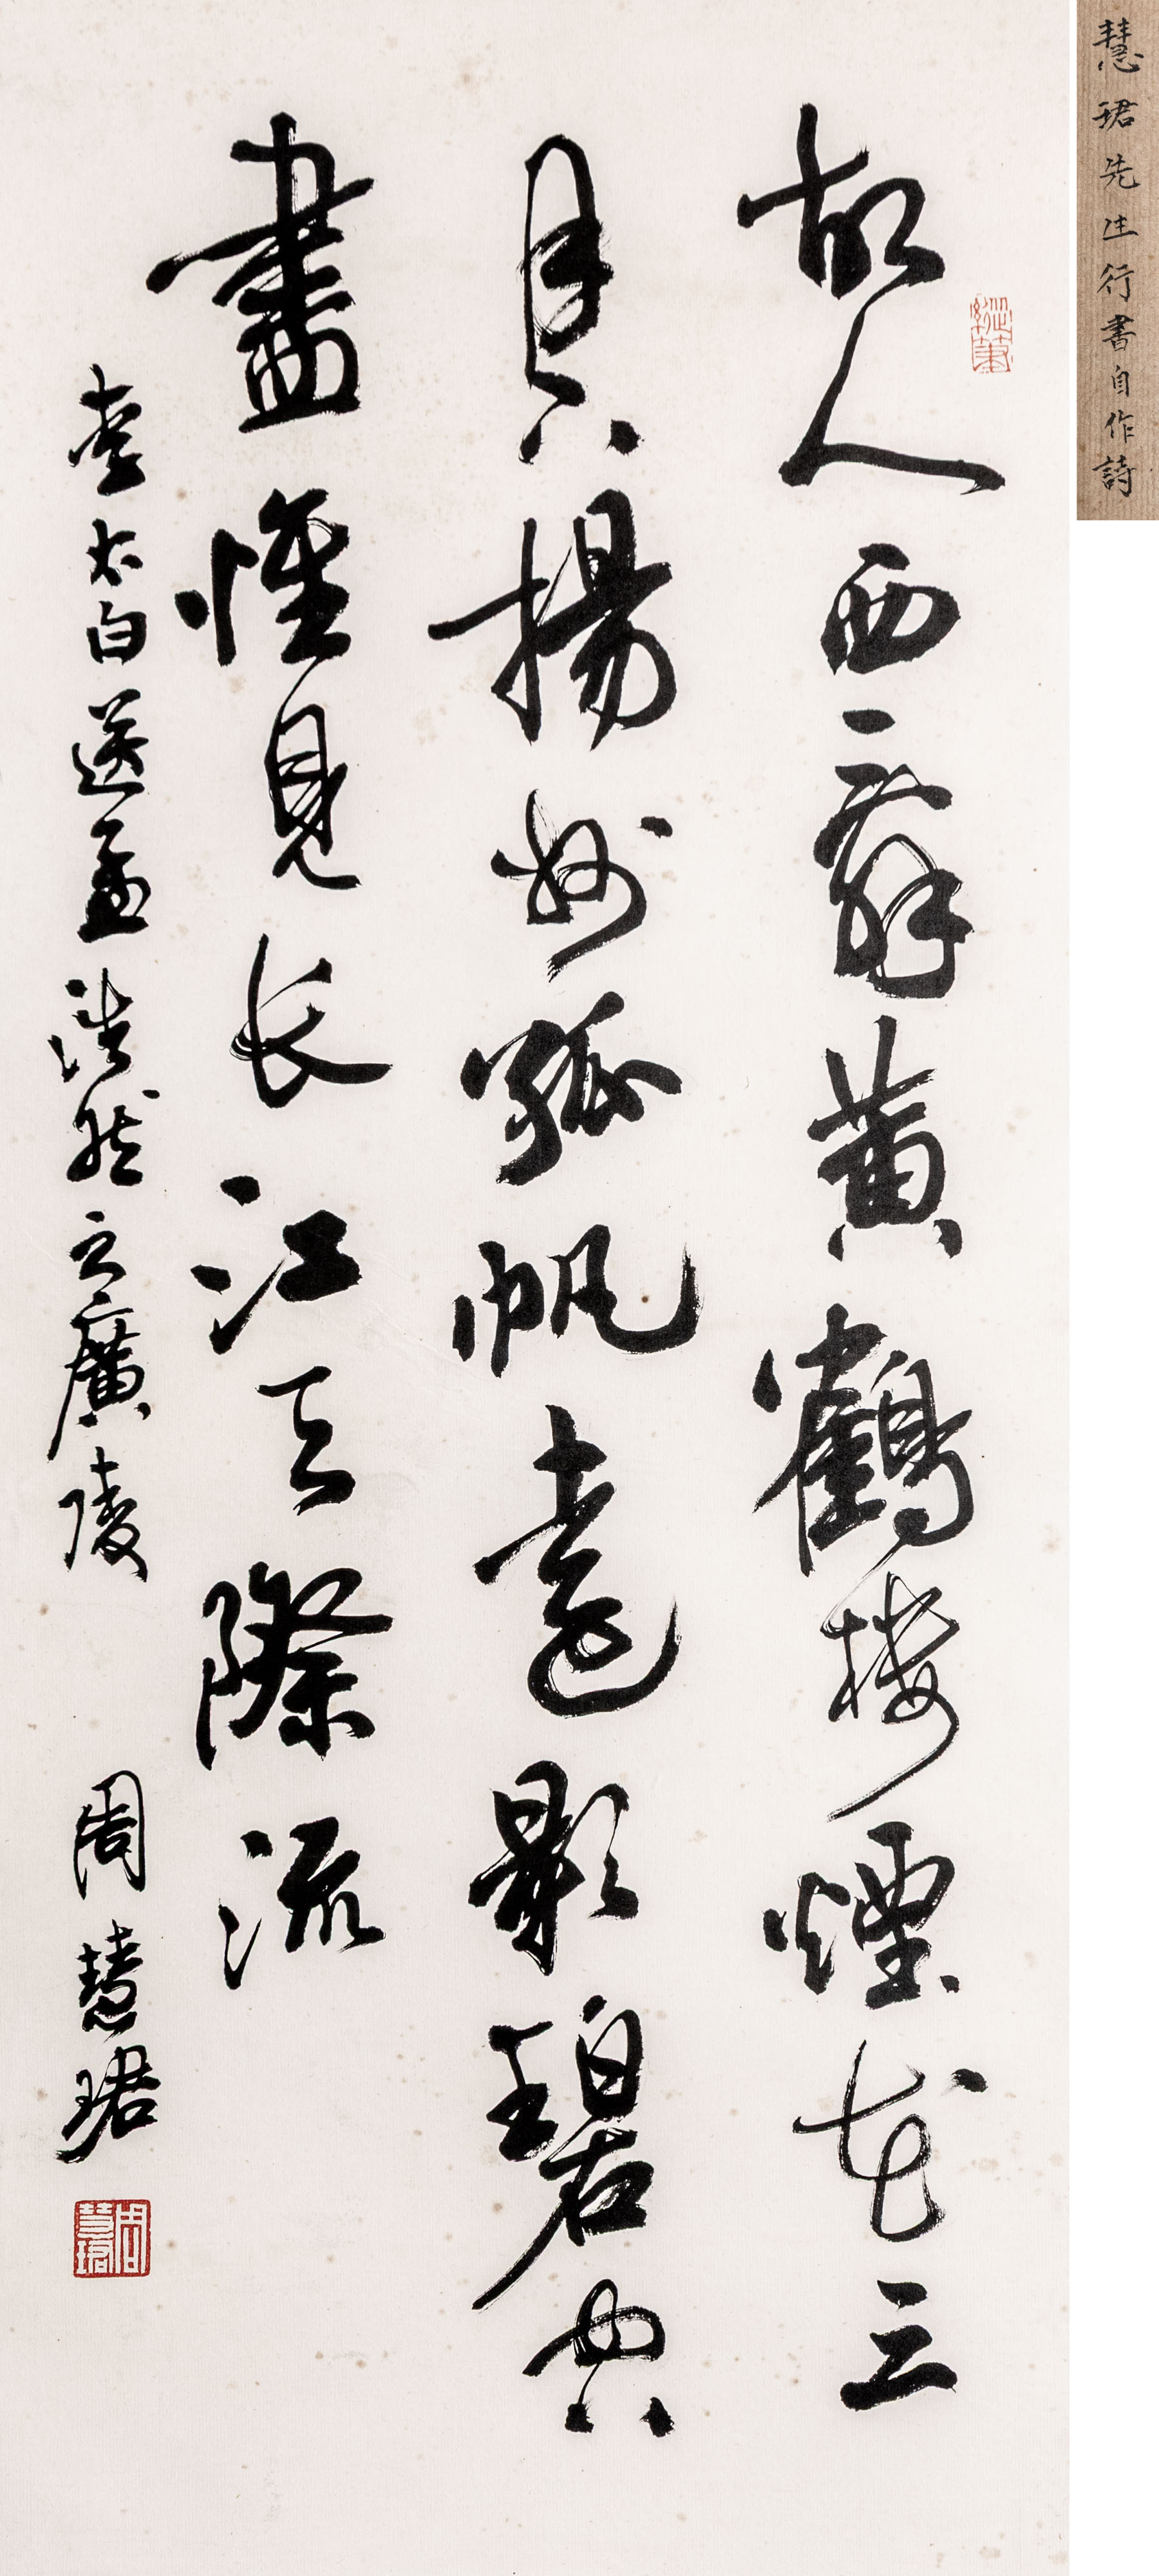 慧珺先生行書自作詩
縱筆
故人西辭黃鶴樓煙花三
月下揚州孤帆遠影碧空
盡惟見長江天際流
李太白送孟浩然之廣陵 周慧珺
周慧珺